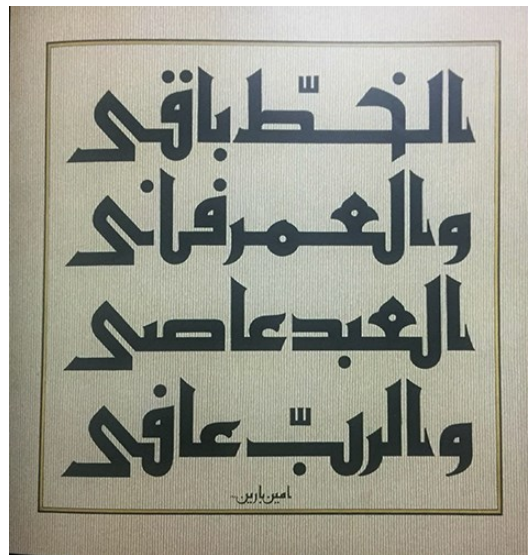 الخطّ باقى
والعمر فانى
العبد عاصى
والربّ عافى
امين بارين